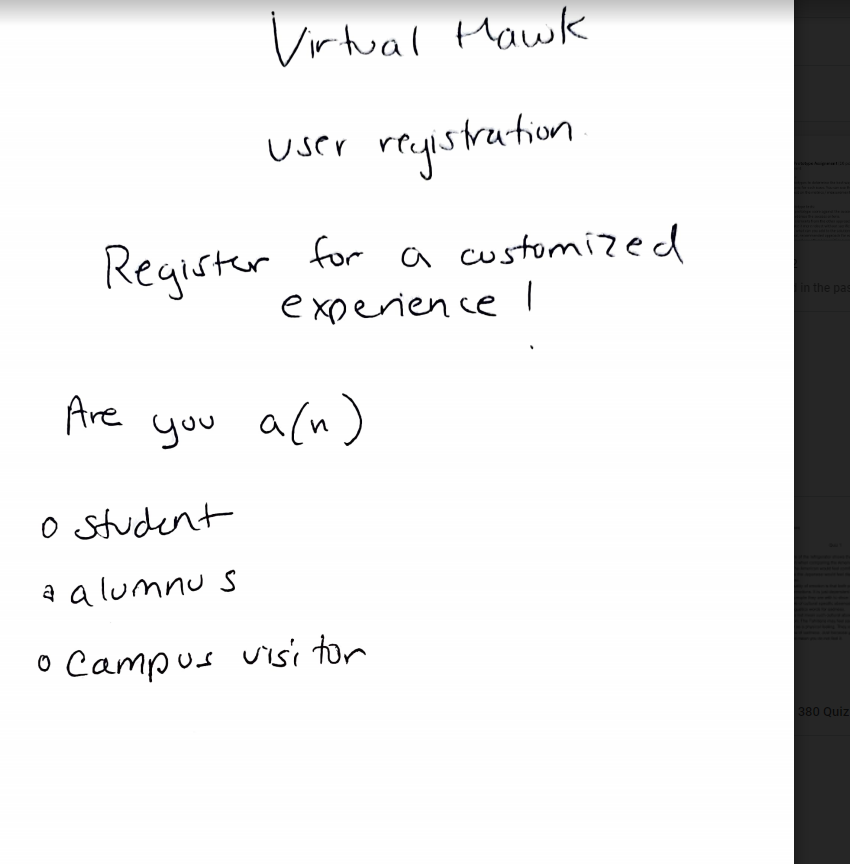 Virtual Hawk
user registration
Register for a customized
experience!
Are you a(n)
o student
o alumnus
o campus visitor
in the pas
380 Quiz